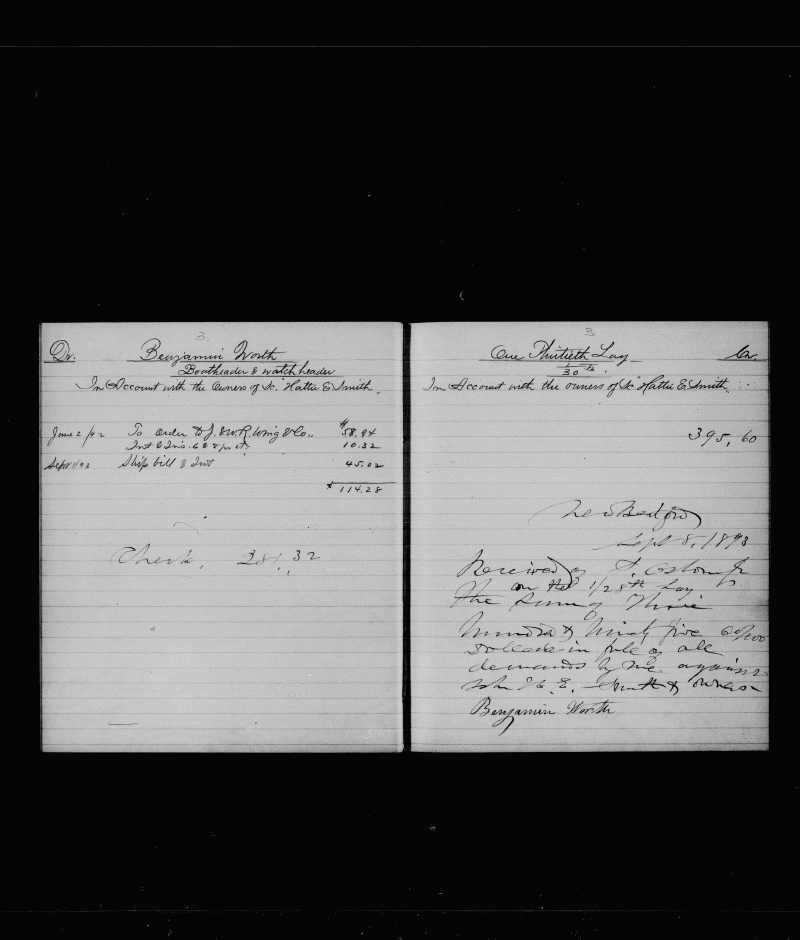 3
Dr. Benjamin Worth
Boatheader & watch header
In Account with the Owners of Sc. Hattie E. Smith.
June 2/92 To order to J. & W.R. Wing & Co., $58.94
Inst & Ins. 6 & 8 pr ct. 10.32
Sept 1/93 Ship bill & Inst 45.02
$ 114.28
Check, 281,32
3
One Thirtieth Lay Cr.
1/30 th.
In Account with the owners of Sc Hattie E. Smith.
395,60
New Bedford
Sept 8, 1893
Received of
on the 1/28th Lay
The Sum of Three
Hundred & Ninety five 60/100
Dollars in full of all
demands by me against
Sch H. E. Smith & owners
Benjamin Worth